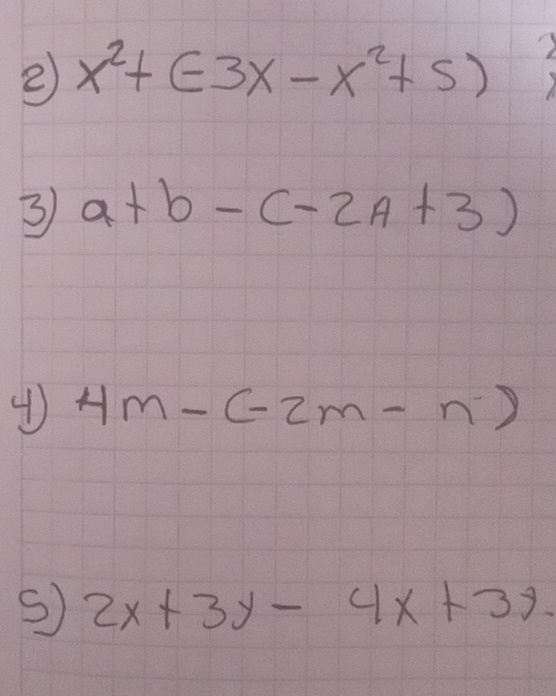 2) x²+ (-3x - x²+ 5)
3) a + b - (-2A + 3)
4) 4m - (-2m - n)
5) 2x + 3y - 4x + 3y.